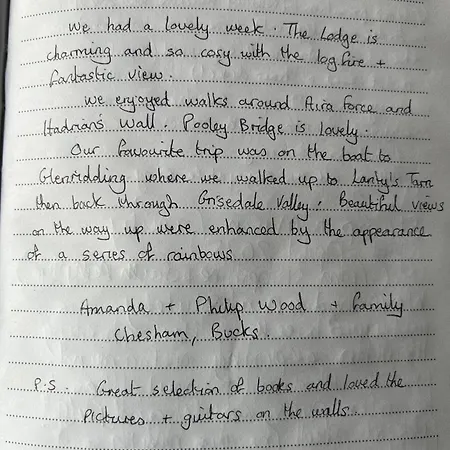 We had a lovely week. The Lodge is
charming and so cosy with the log fire +
fantastic view.
We enjoyed walks around Aira Force and
Hadrian's Wall. Pooley Bridge is lovely.
Our favourite trip was on the boat to
Glenridding where we walked up to Lanty's Tarn
then back through Grisedale Valley. Beautiful views
on the way up were enhanced by the appearance
of a series of rainbows
Amanda + Philip Wood + family
Chesham, Bucks.
P.S. Great selection of books and loved the
Pictures + guitars on the walls.